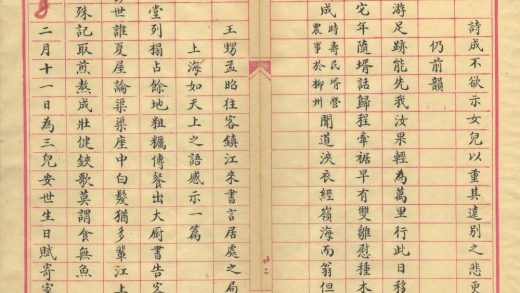 詩成不欲示女兒以重其遠別之悲更
仍前韻
游足跡能先我汝果輕為萬里行此日移
宅年隨壻話歸程牽裾早有雙雛慰種木
成時壽民壻營農事於柳州聞道浹衣經嶺海而翁但
王甥孟昭往客鎮江來書言居處之局
上海如天上之語感示一篇
堂列榻占餘地粗糲傳餐出大廚書告客
世誰夏屋論渠渠座中白髮猶多輩江上
殊記取煎熬成壯健鋏歌莫謂食無魚
二月十一日為三兒安世生日賦寄家